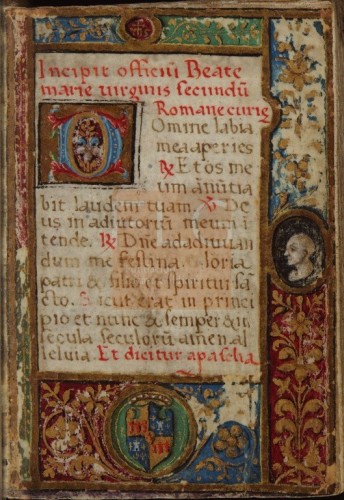 Incipit officiũ Beate
marie uirginis secundũ
Romane curię
Domine labia
mea aperies
℟ Et os me
um ãnũtia
bit laudem tuam. ℣ De
us in adiutoriũ meum ĩ
tende. ℟ Dñe ad adiuuan
dum me festina. Gloria
patri & filio et spiritui sã
cto. Sicut erat in princi
pio et nunc & semper & ĩ
secula seculorũ amen. al
leluia. Et dicitur a pascha